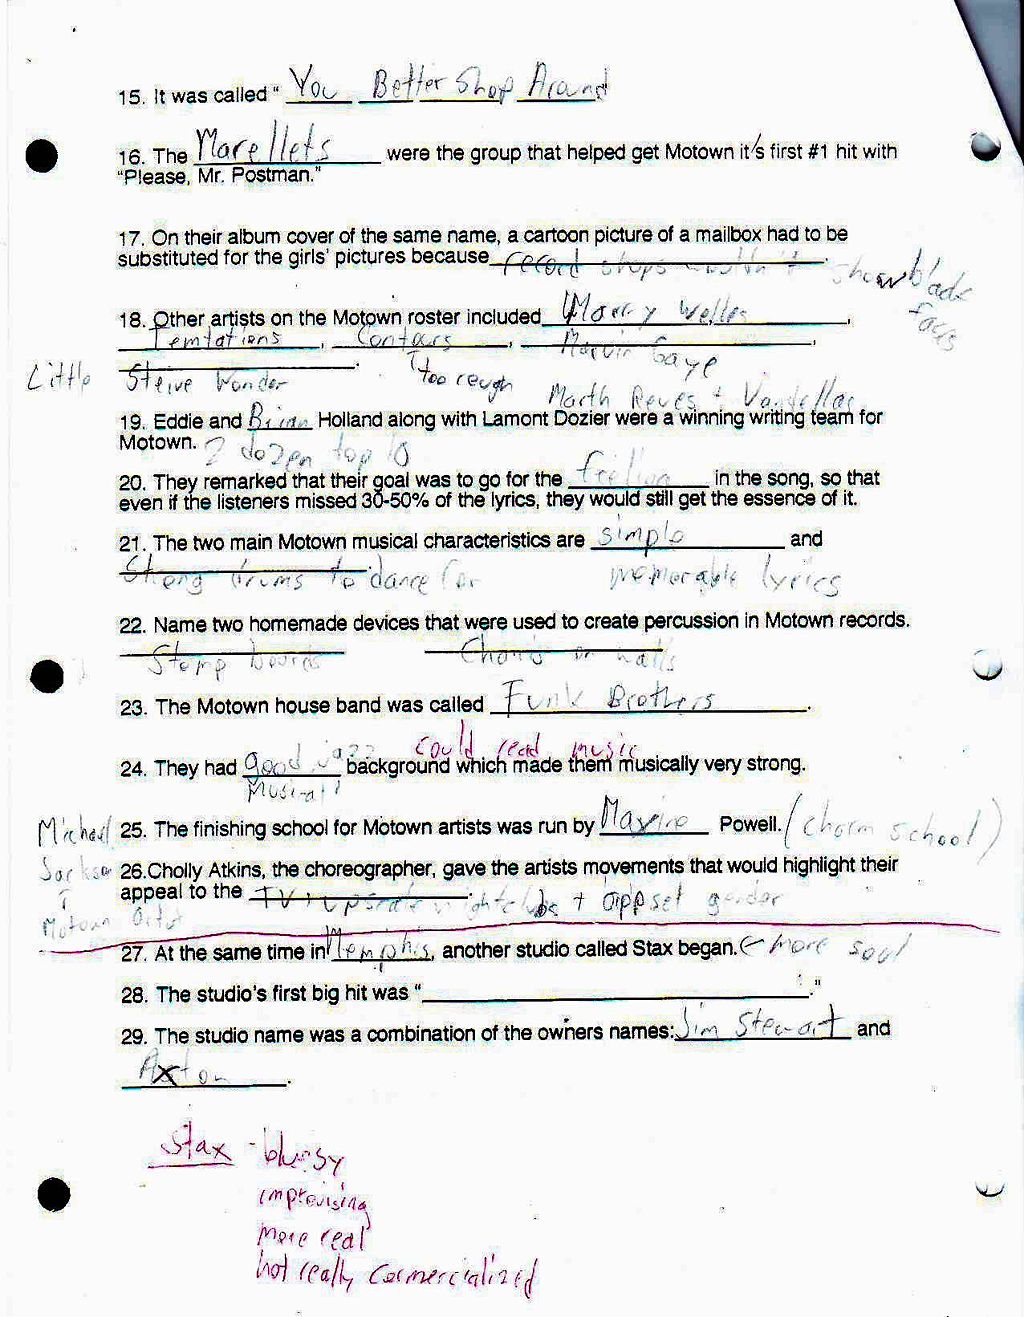 15. It was called " You Better Shop Around
16. The Marellets were the group that helped get Motown it's first #1 hit with
"Please, Mr. Postman."
17. On their album cover of the same name, a cartoon picture of a mailbox had to be
substituted for the girls' pictures because record shops wouldn't show black
faces
18. Other artists on the Motown roster included Marry Welles,
Temtations, Contours, Marvin Gaye,
Little Steive Wonder. too rough
Marth Reves + Vandellas
19. Eddie and Brian Holland along with Lamont Dozier were a winning writing team for
Motown. 2 dozen top 10
20. They remarked that their goal was to go for the feeling in the song, so that
even if the listeners missed 30-50% of the lyrics, they would still get the essence of it.
21. The two main Motown musical characteristics are simple and
Strong drums to dance for memorable lyrics
22. Name two homemade devices that were used to create percussion in Motown records.
Stomp boards Chains on walls
23. The Motown house band was called Funk Brothers.
could read music
24. They had good jazz background which made them musically very strong.
musical
25. The finishing school for Motown artists was run by Maxine Powell. (charm school)
Michael
Jackson
26.Cholly Atkins, the choreographer, gave the artists movements that would highlight their
appeal to the TV, upscale nightclubs + oppset gender
Motown
27. At the same time in Memphis, another studio called Stax began. ← more soul
28. The studio's first big hit was " ."
29. The studio name was a combination of the owners names: Jim Stewart and
Axton.
Stax - bluesy
improvising
more real
not really commercialized